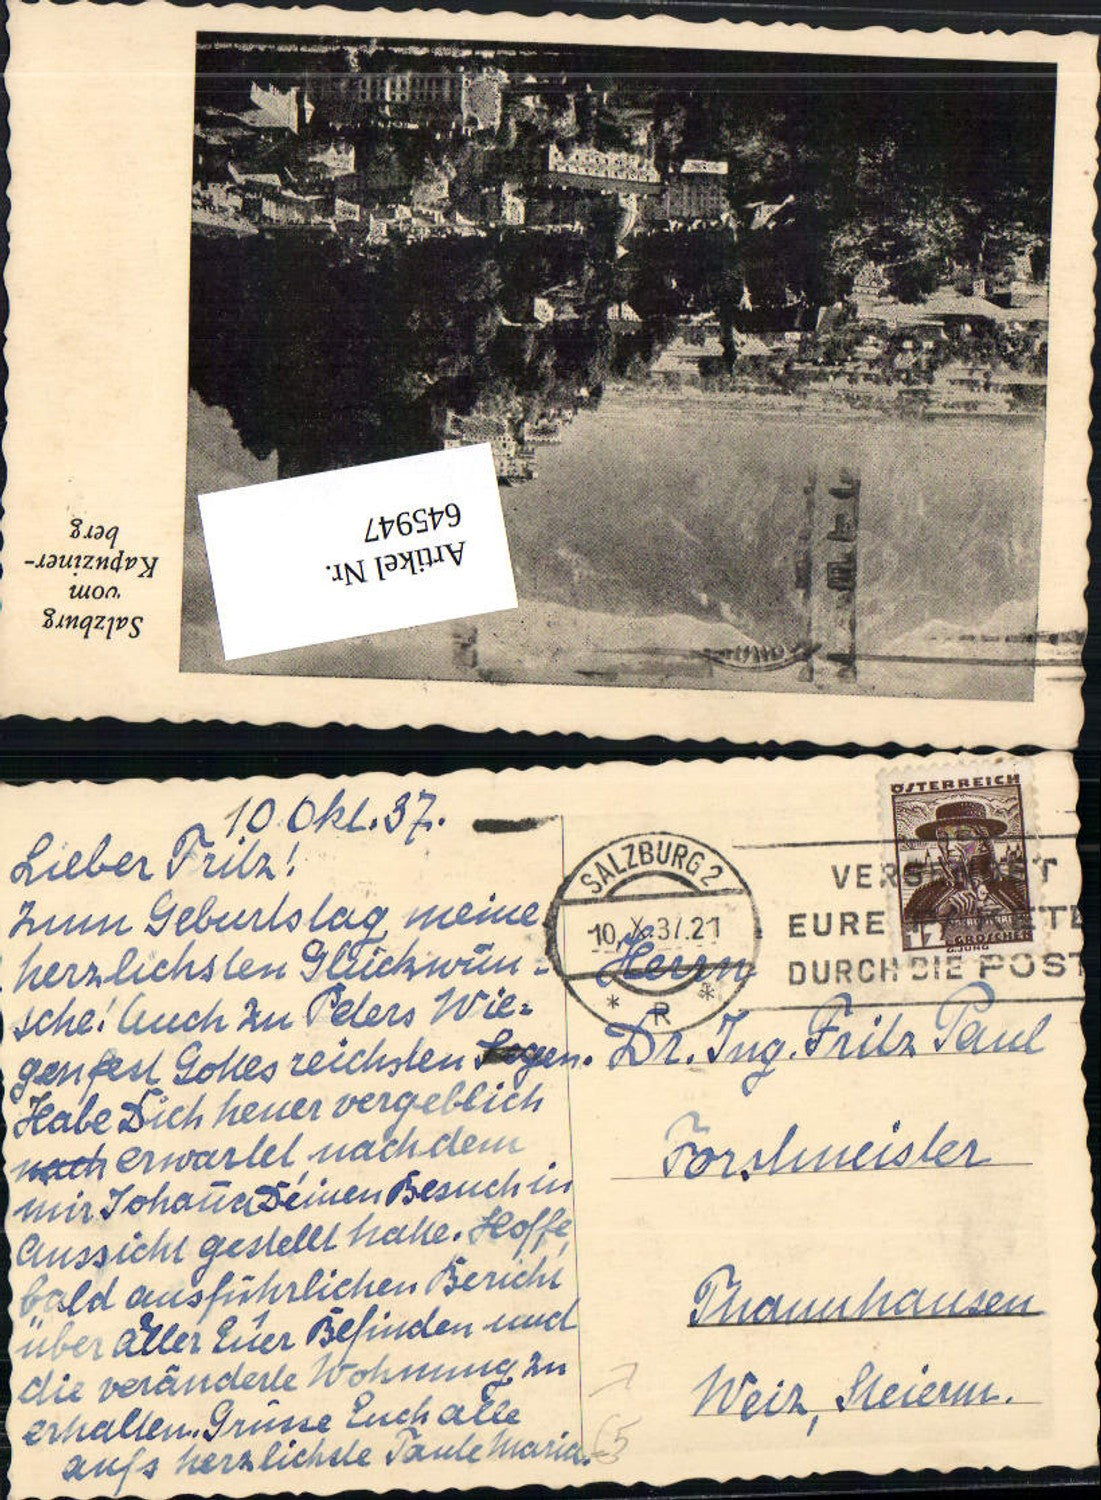 Salzburg
vom
Kapuziner-
berg
Artikel Nr.
645947
10. Okt. 37.
Lieber Fritz!
Zum Geburtstag meine
herzlichsten Glückwün-
sche! Auch zu Peters Wie-
genfest Gottes reichsten Segen.
Habe Dich heuer vergeblich
nach erwartet, nachdem
mir Johanna Deinen Besuch in
Aussicht gestellt hatte. Hoffe
bald ausführlichen Bericht
über aller Euer Befinden und
die veränderte Wohnung zu
erhalten. Grüsse Euch alle
aufs herzlichste Tante Maria.
SALZBURG 2
10.X.37.21
* R *
EURE
DURCH DIE POST
ÖSTERREICH
GROSCHEN
Herrn
Dr. Ing. Fritz Paul
Forstmeister
Thannhausen
Weiz, Steierm.